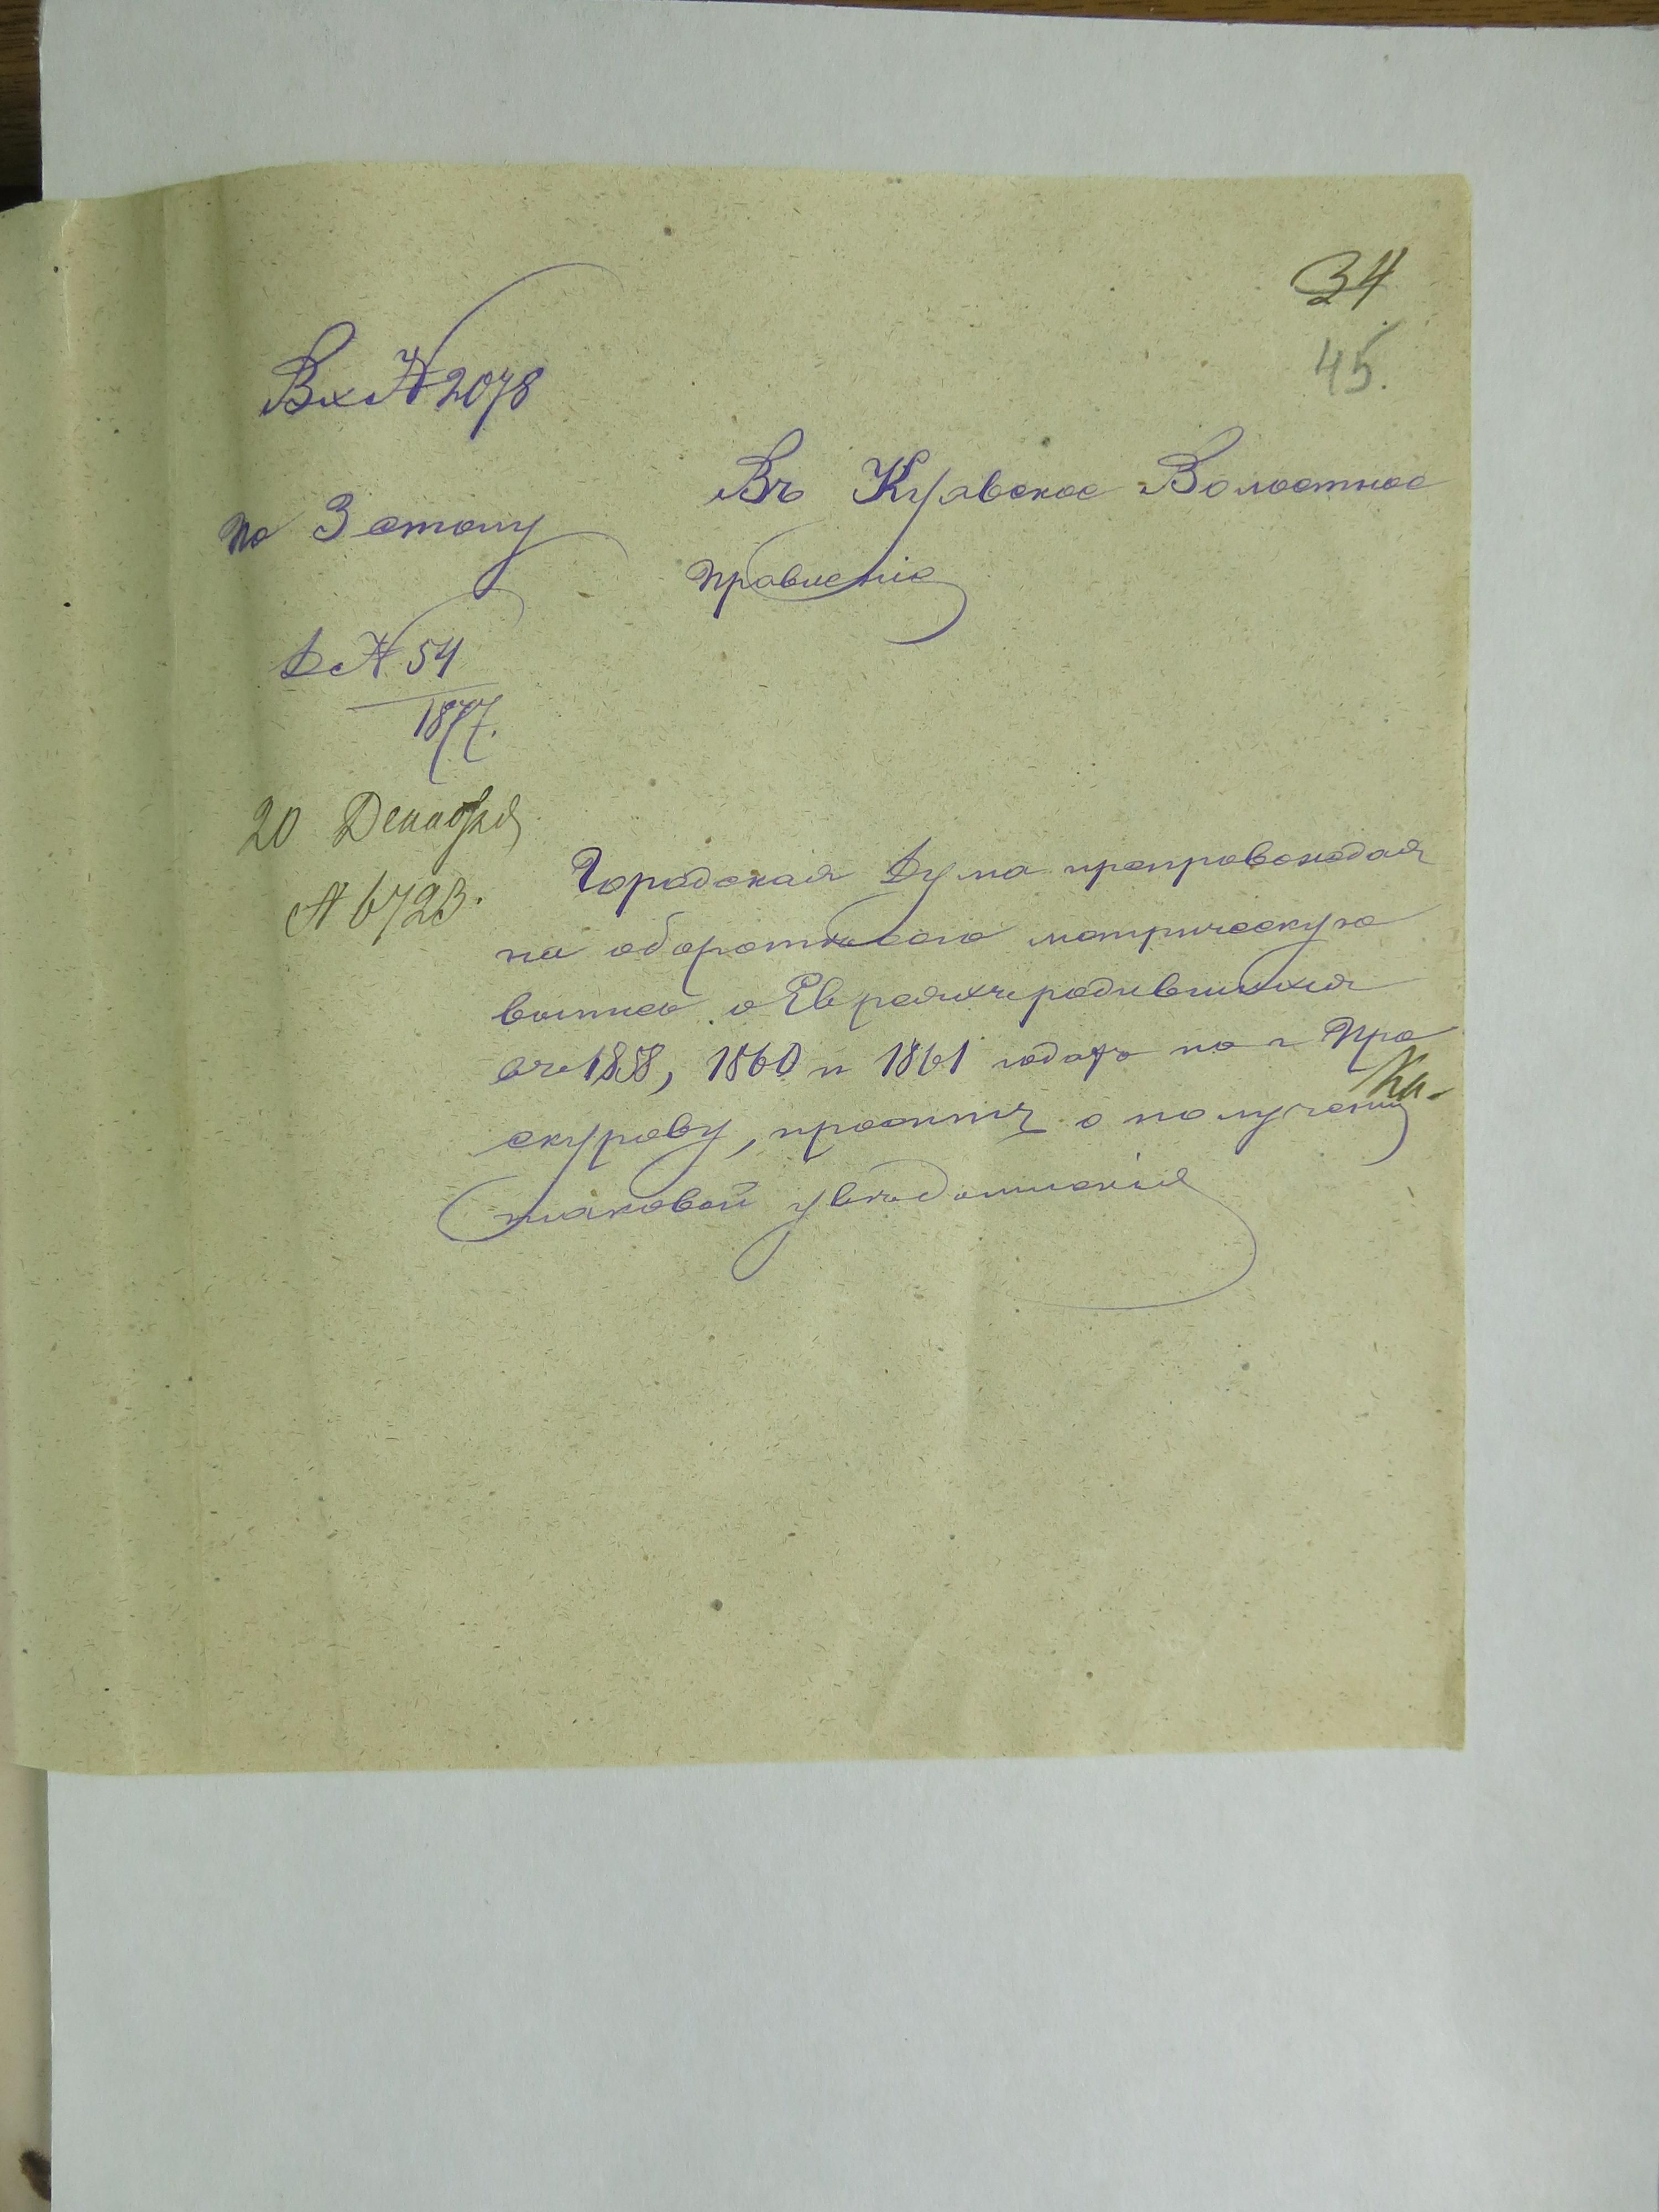 34
45.
Вх № 2078
Въ Куявское Волостное
по 3 столу
Правленіе
Д № 54
1877.
20 Декабря
№ 6723.
Городская Дума препровождая
на оборотѣ сего метрическую
выпись о Евреяхъ родившихся
въ 1858, 1860 и 1861 годахъ по г Про
скурову, проситъ о полученіи
таковой увѣдомленія